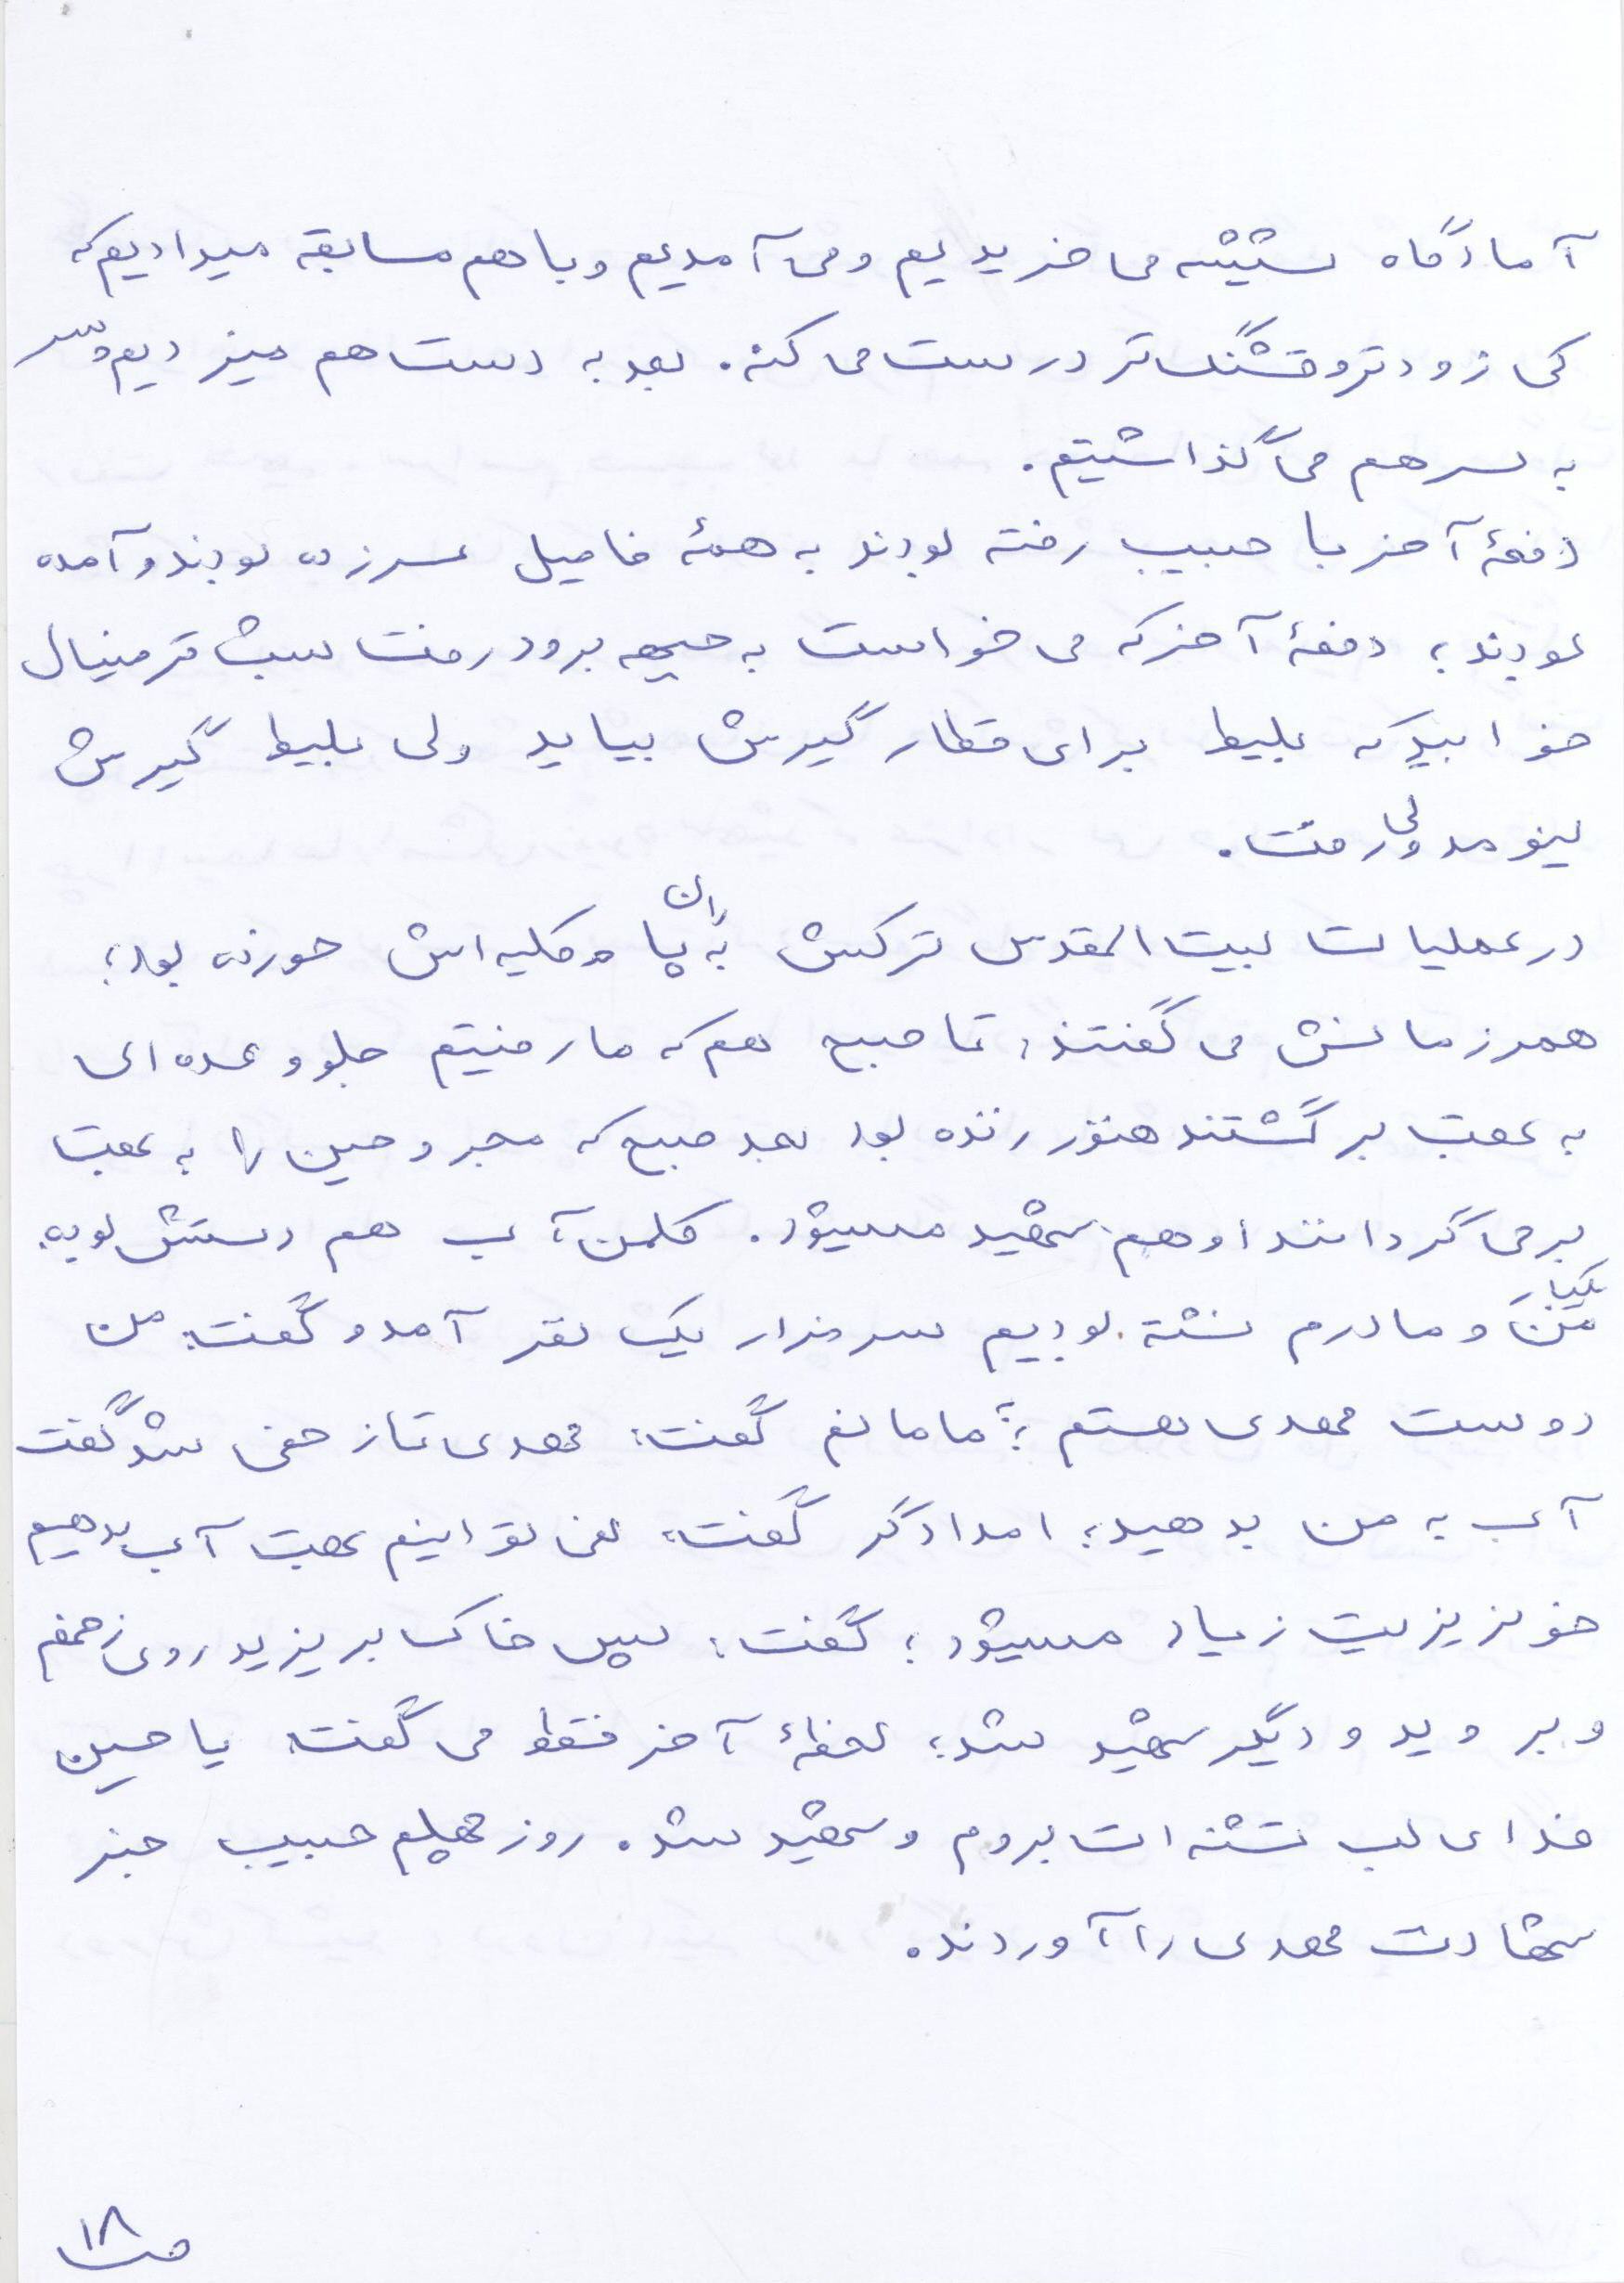 آمادگاه شیشه می خریدیم و می آمدیم و با هم مسابقه میدادیم که
کی زودتر و قشنگ تر درست می کنه. بعد به دست هم میزدیم و سر
به سر هم می گذاشتیم.
دفعهٔ آخر با حبیب رفته بودند به همهٔ فامیل سر زده بودند و آمده
بودند؛ دفعهٔ آخر که می خواست به جبهه برود رفت شب ترمینال
خوابید که بلیط برای قطار گیرش بیاید ولی بلیط گیرش
نیومد ولی رفت.
در عملیات بیت المقدس ترکش به ران پا و کلیه اش خورده بود؛
همرزمانش می گفتند: تا صبح هم که ما رفتیم جلو و عده ای
به عقب برگشتند هنوز زنده بود بعد صبح که مجروحین را به عقب
برمی گردانند او هم شهید میشود. کلمن آب هم دستش بوده.
یکبار من و مادرم نشسته بودیم سر مزار یک نفر آمد و گفت: من
دوست مهدی هستم؛ مامانم گفت: مهدی تا زخمی شد گفت
آب به من بدهید؛ امدادگر گفت: نمی توانیم بهت آب بدهیم
خونریزیت زیاد میشود؛ گفت: پس خاک بریزید روی زخمم
و بروید و دیگر شهید شد؛ لحظهٔ آخر فقط می گفت: یا حسین
فدای لب تشنه ات بروم و شهید شد. روز چهلم حبیب خبر
شهادت مهدی را آوردند.
۱۸